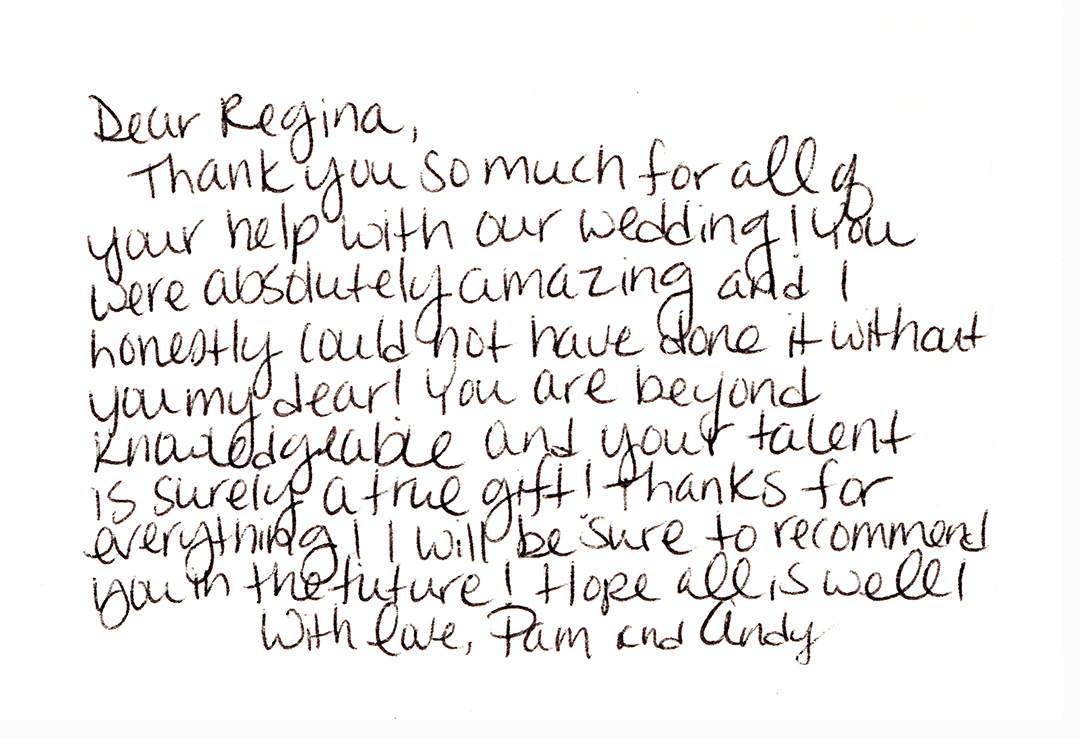 Dear Regina,
Thank you so much for all of
your help with our wedding! You
were absolutely amazing and I
honestly could not have done it without
you my dear! You are beyond
knowledgeable and your talent
is surely a true gift! Thanks for
everything! I will be sure to recommend
you in the future! Hope all is well!
With love, Pam and Andy